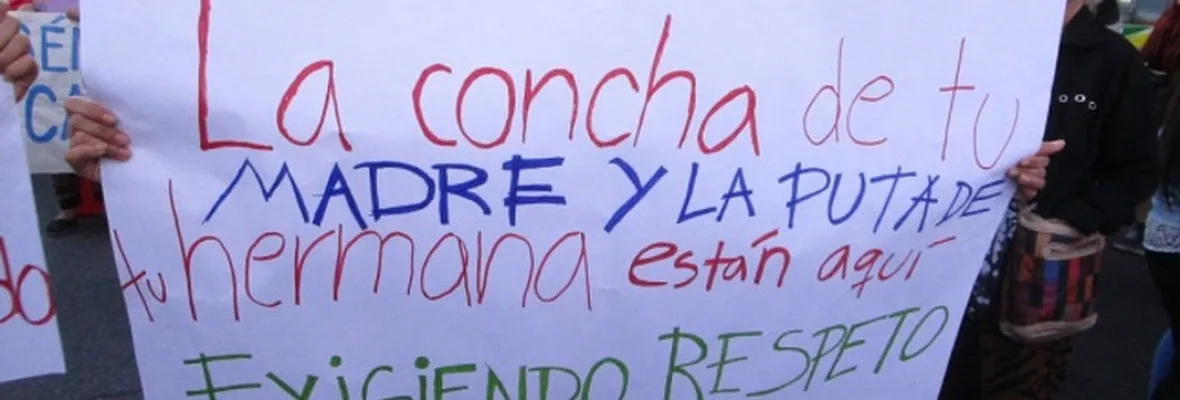 La concha de tu
MADRE Y LA PUTA DE
tu hermana están aquí
EXiGiENDO RESPETO